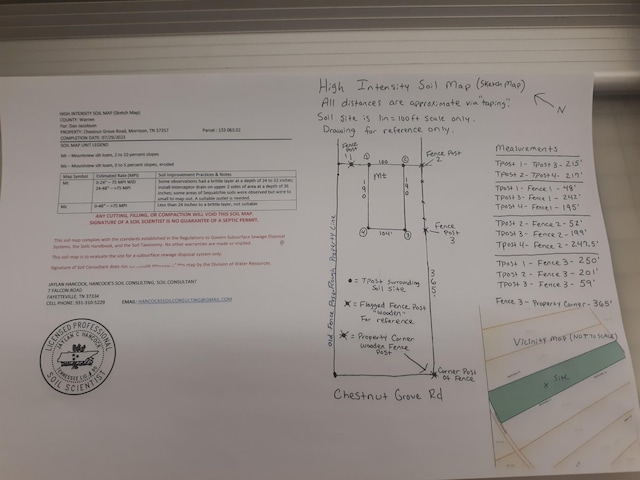 HIGH INTENSITY SOIL MAP (Sketch Map)
COUNTY: Warren
For: Dan Jacobson
PROPERTY: Chestnut Grove Road, Morrison, TN 37357 Parcel: 133 063.02
COMPLETION DATE: 07/20/2023
SOIL MAP UNIT LEGEND
Mt - Mountview silt loam, 2 to 10 percent slopes
Me - Mountview silt loam, 0 to 5 percent slopes, eroded
Map Symbol Estimated Rate (MPI) Soil Improvement Practices & Notes
Mt 0-24" – 75 MPI
24-48" – >75 MPI
Some observations had a brittle layer at a depth of 24 to 32 inches;
install interceptor drain on upper 3 sides of area at a depth of 36
inches; some areas of Sequatchie soils were observed but were to
small to map out. A suitable outlet is needed.
Me 0-48" – >75 MPI Less than 24 inches to a brittle layer, not suitable
ANY CUTTING, FILLING, OR COMPACTION WILL VOID THIS SOIL MAP.
SIGNATURE OF A SOIL SCIENTIST IS NO GUARANTEE OF A SEPTIC PERMIT.
This soil map complies with the standards established in the Regulations to Govern Subsurface Sewage Disposal
Systems, the Soil Handbook, and the Soil Taxonomy. No other warranties are made or implied.
This map is to evaluate the site for a subsurface sewage disposal system only.
Signature of Soil Consultant does not map by the Division of Water Resources.
JAYLAN HANCOCK, HANCOCK'S SOIL CONSULTING, SOIL CONSULTANT
7 FALCON ROAD
FAYETTEVILLE, TN 37334
CELL PHONE: 931-310-5229 EMAIL: HANCOCKSSOILCONSULTING@GMAIL.COM
LICENSED PROFESSIONAL
JAYLAN C HANCOCK
SOIL SCIENTIST
High Intensity Soil Map (Sketch Map)
All distances are approximate via "taping".
Soil site is 1in=100ft scale only.
Drawing for reference only.
N
Fence Post
1
①
100
②
Fence Post
2
190
Mt
190
④
104'
③
Fence
Post
3
Old Fence Row/Rough Property Line
365'
● = Tpost surrounding
Soil site
= Flagged Fence Post
"wooden"
For reference
= Property Corner
wooden Fence
Post
Corner Post
of Fence
Chestnut Grove Rd
Measurements
Tpost 1 - Tpost 3 - 215'
Tpost 2 - Tpost 4 - 217'
Tpost 1 - Fence 1 - 48'
Tpost 3 - Fence 1 - 242'
Tpost 4 - Fence 1 - 195'
Tpost 2 - Fence 2 - 52'
Tpost 3 - Fence 2 - 199'
Tpost 4 - Fence 2 - 247.5'
Tpost 1 - Fence 3 - 250'
Tpost 2 - Fence 3 - 201'
Tpost 3 - Fence 3 - 59'
Fence 3 - Property Corner - 365'
Vicinity Map (NOT TO SCALE)
x Site